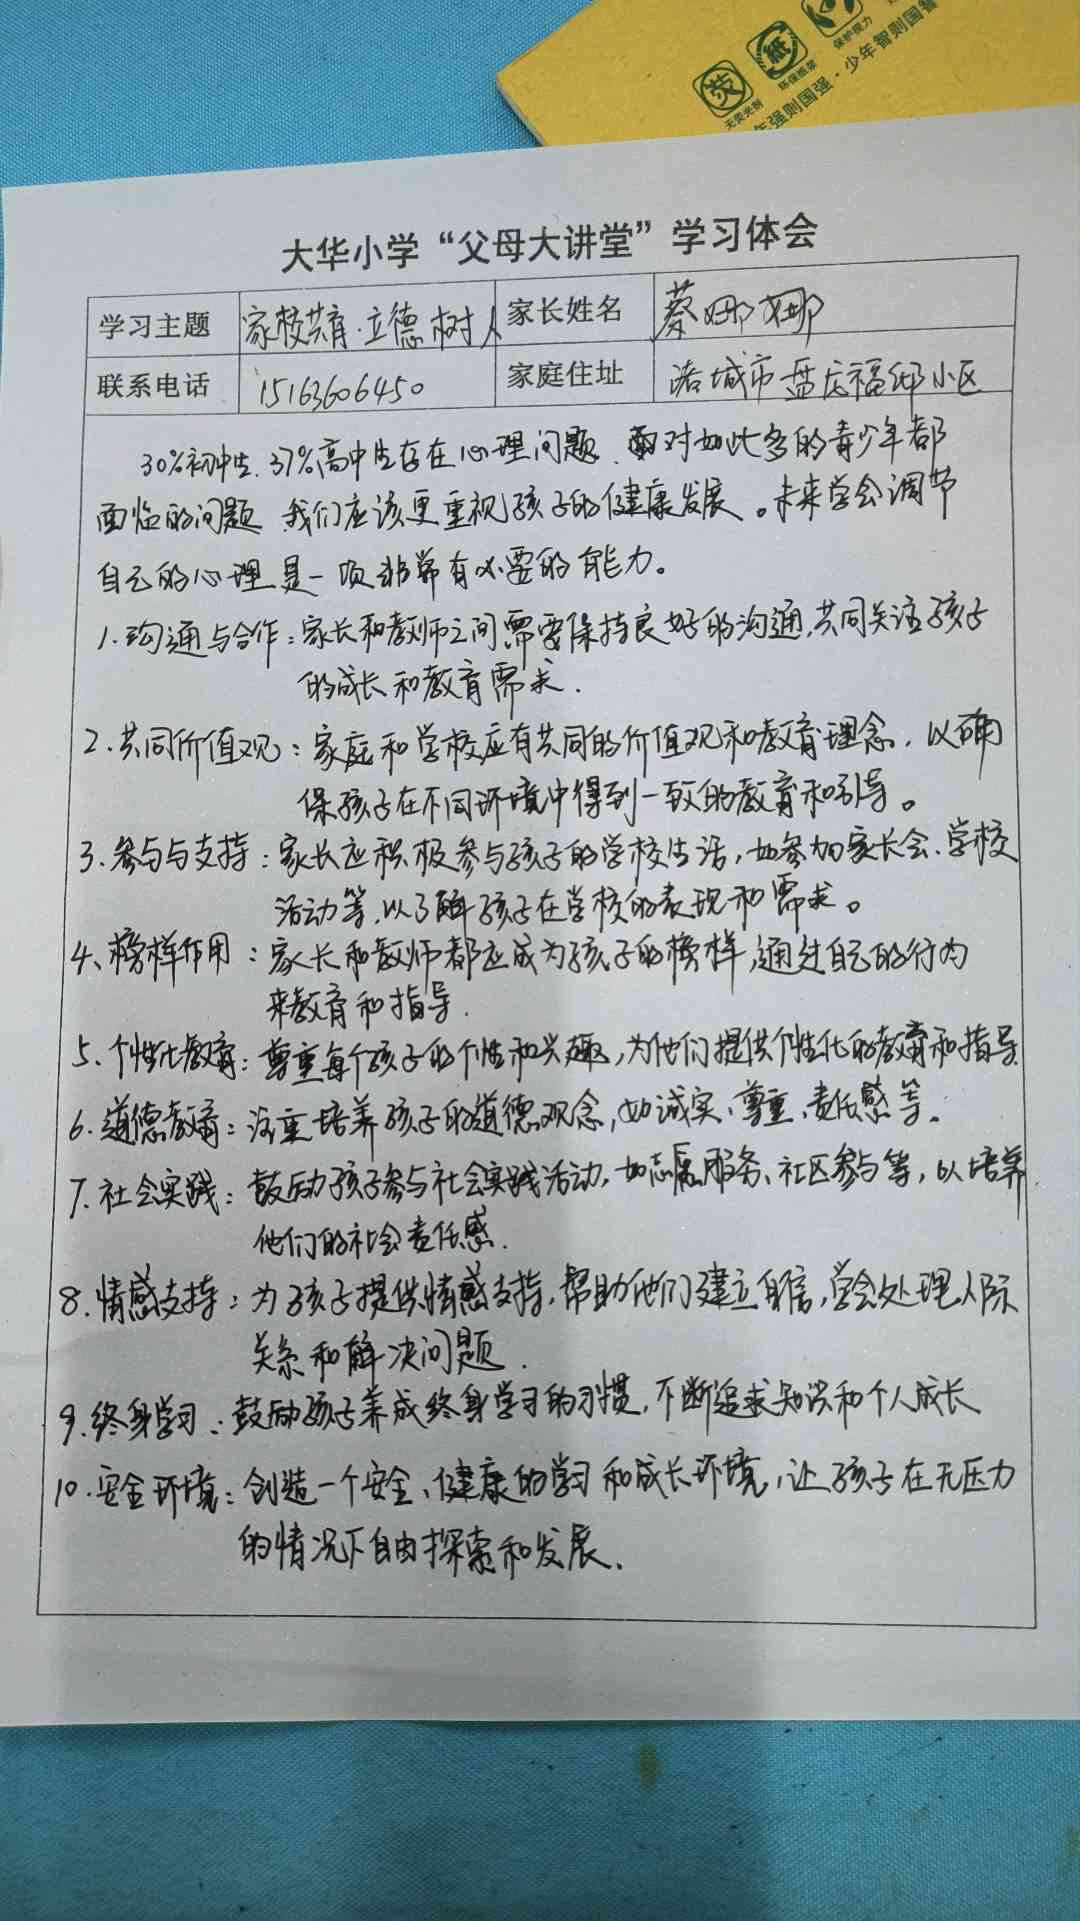 荧
无荧光剂
纸
环保纸张
保护视力
年强则国强·少年智则国智
大华小学“父母大讲堂”学习体会
学习主题 家校共育·立德树人 家长姓名 蔡娜娜
联系电话 15163606450 家庭住址 诸城市 福邸小区
30%初中生、37%高中生存在心理问题、面对如此多的青少年都
面临的问题 我们应该更重视孩子的健康发展。未来学会调节
自己的心理是一项非常有必要的能力。
1.沟通与合作:家长和教师之间需要保持良好的沟通,共同关注孩子
的成长和教育需求.
2.共同价值观:家庭和学校应有共同的价值观和教育理念,以确
保孩子在不同环境中得到一致的教育和引导。
3.参与与支持:家长应积极参与孩子的学校生活,如参加家长会、学校
活动等,以了解孩子在学校的表现和需求。
4、榜样作用:家长和教师都应成为孩子的榜样,通过自己的行为
来教育和指导.
5、个性化教育:尊重每个孩子的个性和兴趣,为他们提供个性化的教育和指导.
6.道德教育:注重培养孩子的道德观念,如诚实、尊重、责任感等.
7.社会实践:鼓励孩子参与社会实践活动,如志愿服务、社区参与等,以培养
他们的社会责任感.
8.情感支持:为孩子提供情感支持,帮助他们建立自信,学会处理人际
关系和解决问题.
9.终身学习:鼓励孩子养成终身学习的习惯,不断追求知识和个人成长
10.安全环境:创造一个安全、健康的学习和成长环境,让孩子在无压力
的情况下自由探索和发展.